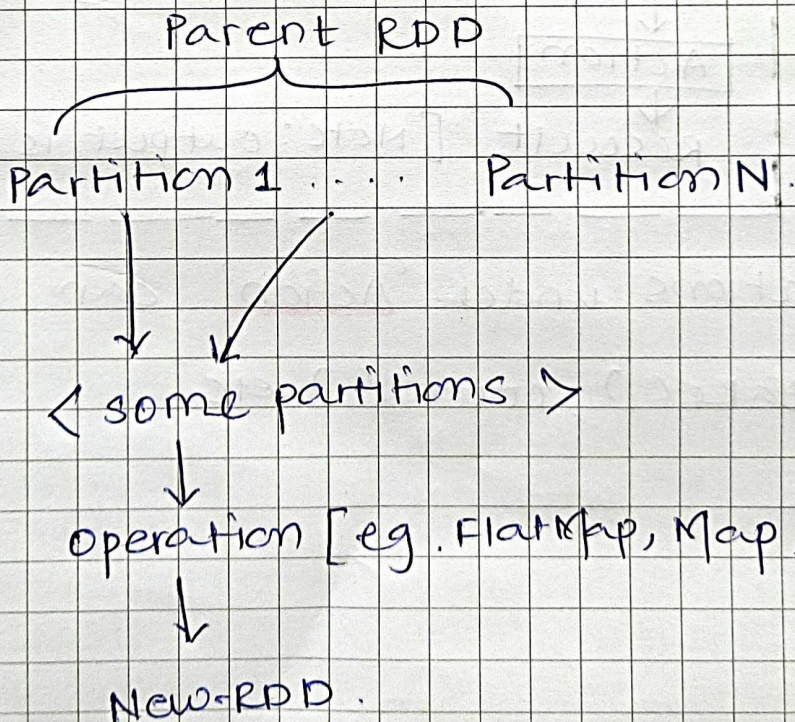 Parent RDD
Partition 1 .... Partition N.
< some partitions >
operation [eg. FlatMap, Map
New-RDD.